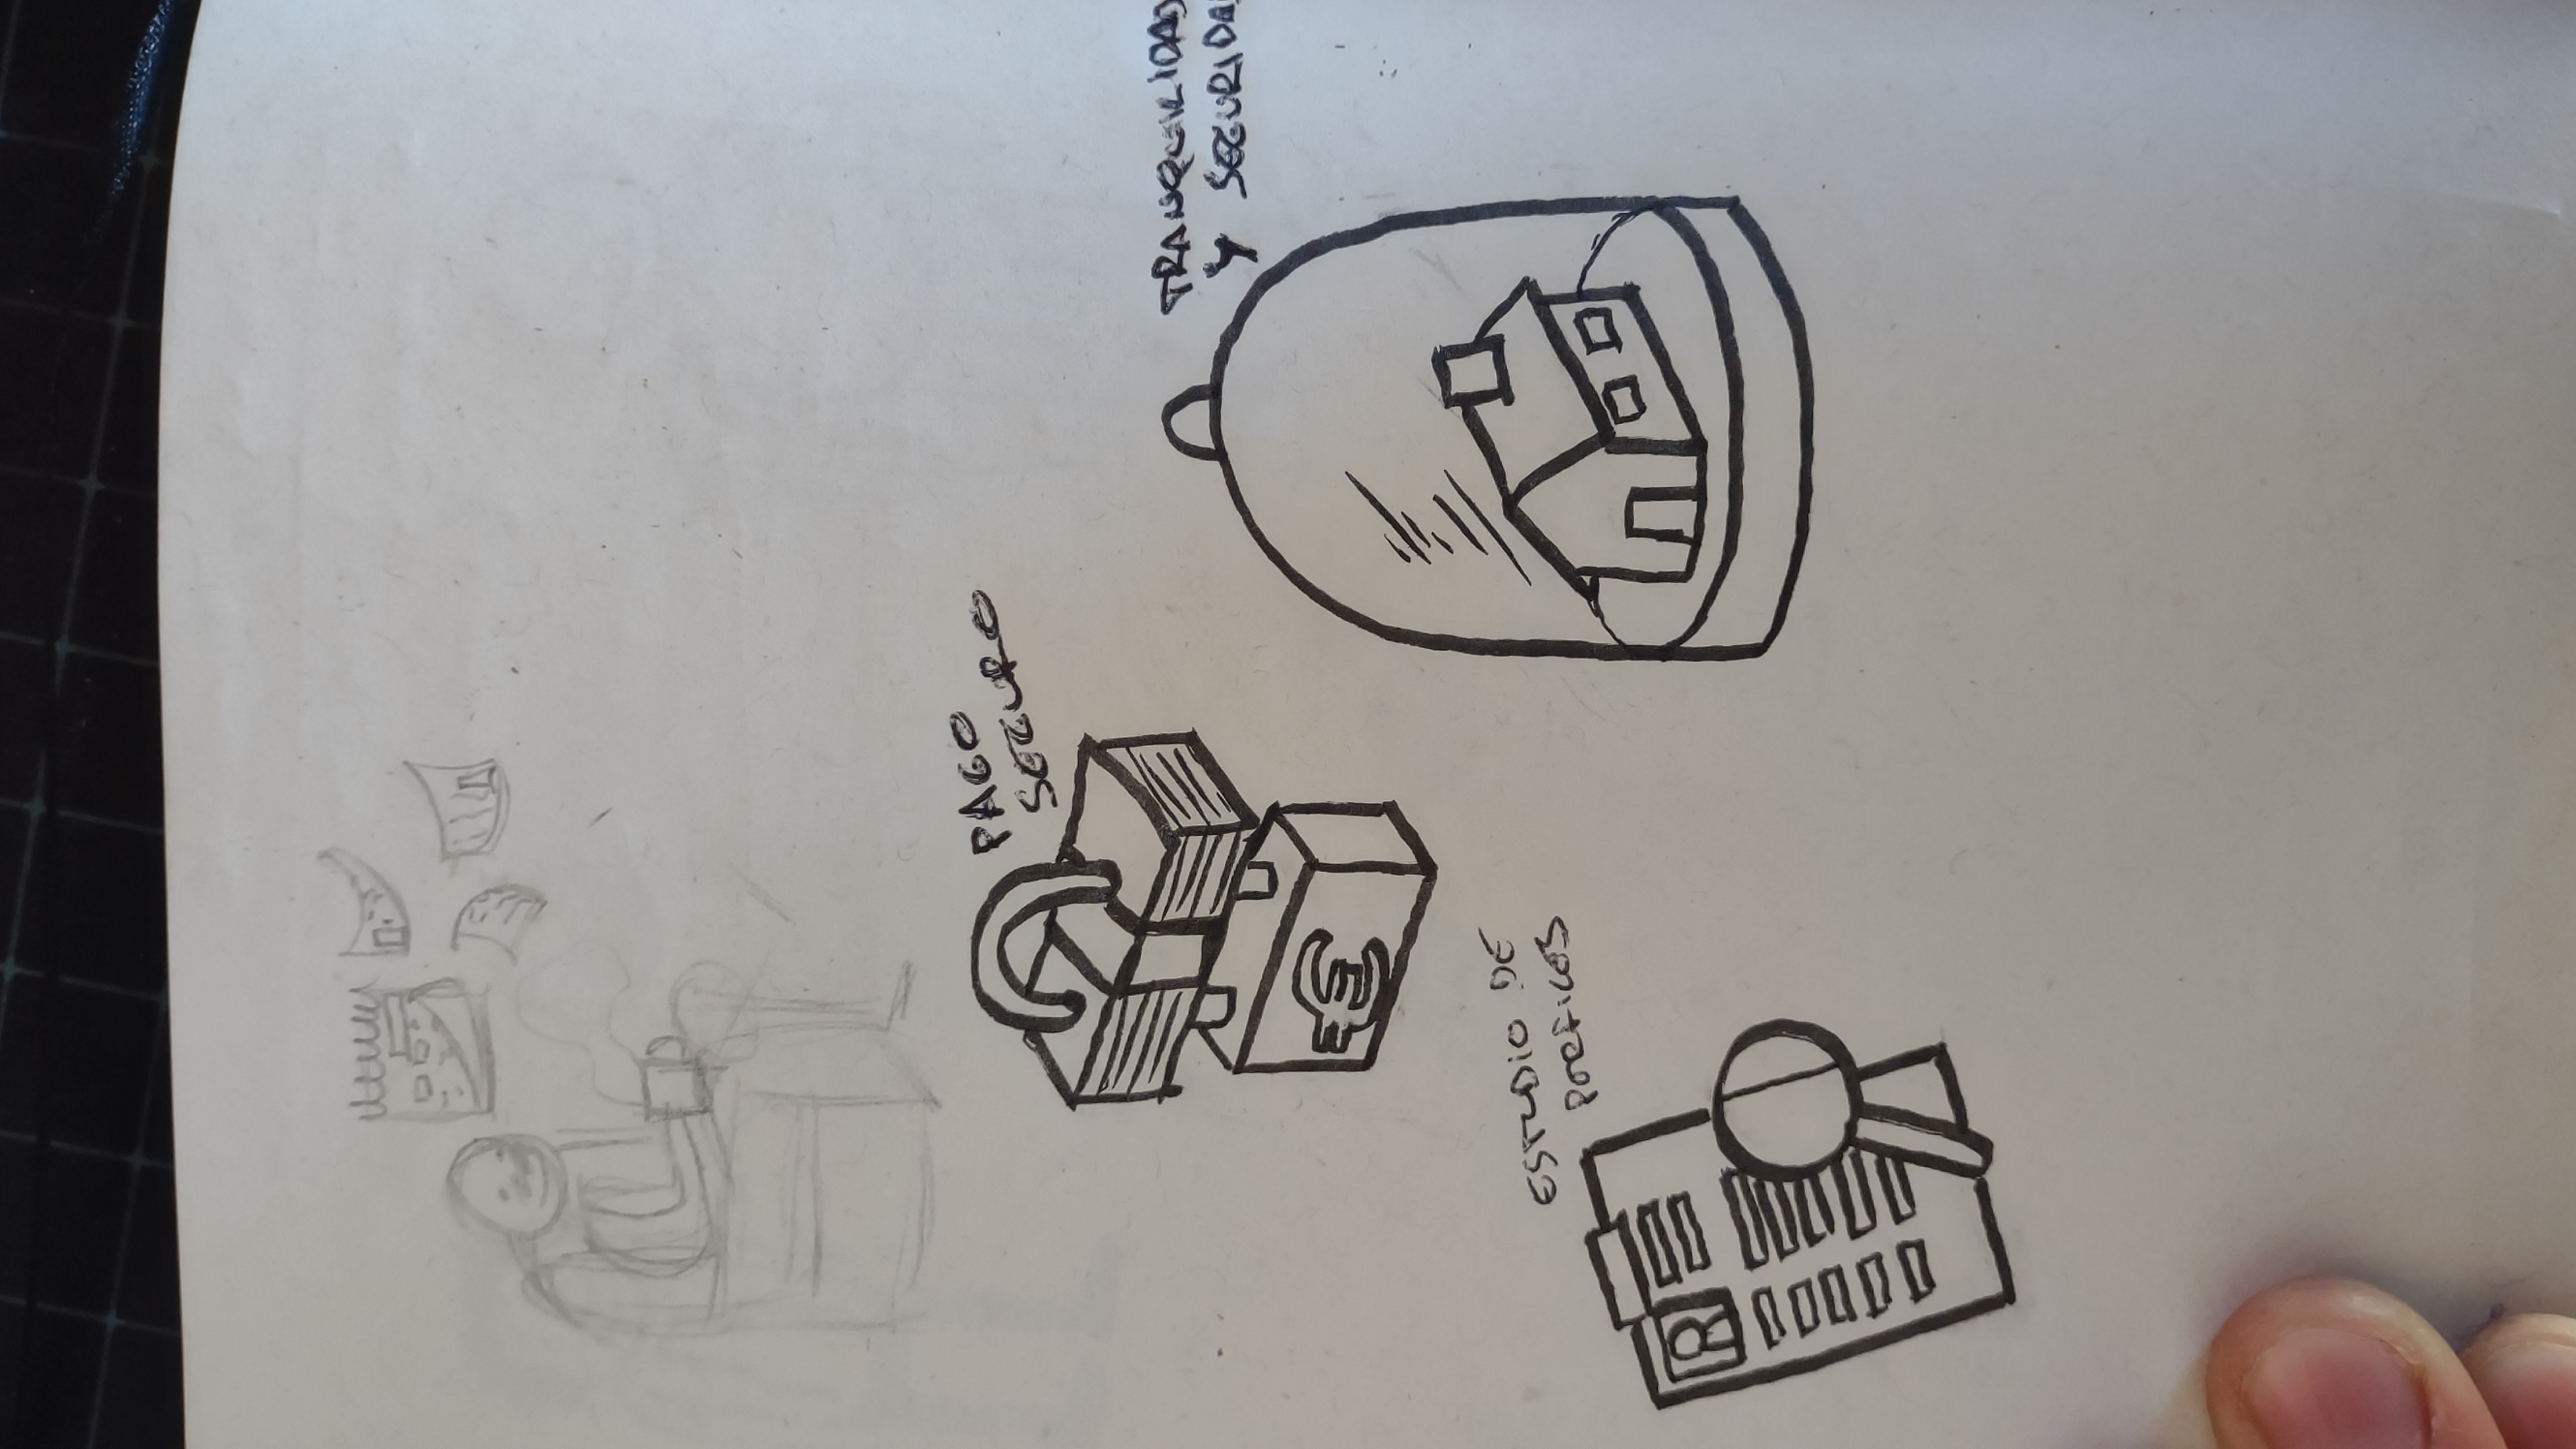 PAGO
SEGURO
TRANQUILIDAD
Y SEGURIDAD
ESTUDIO DE
PERFILES
R
€